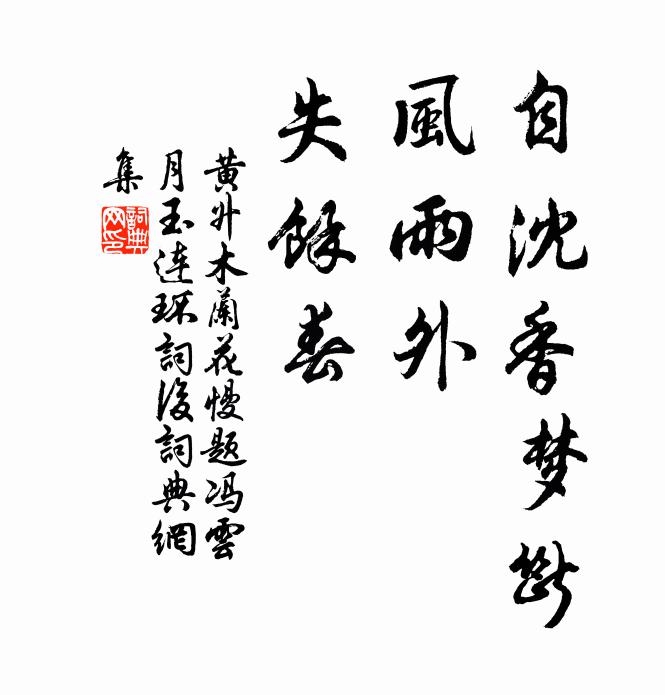 自沈香梦斷
風雨外
失餘春
黄升木蘭花慢題冯雲
月玉连环詞後詞典網
集
詞典網印